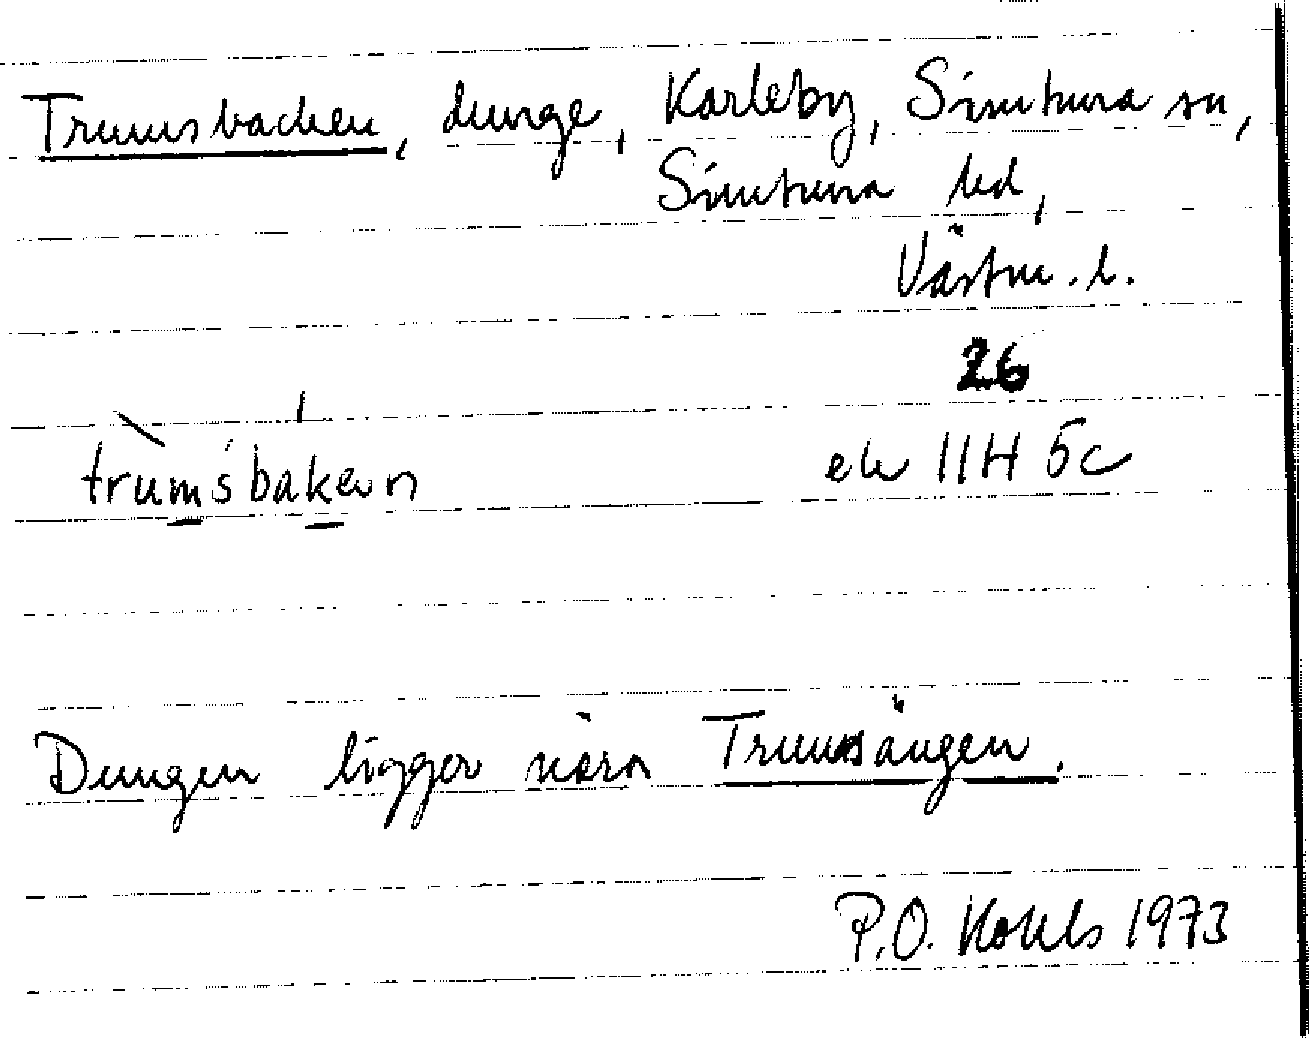 Trumsbacken, dunge, Karleby, Simtuna sn,
Simtuna hd,
Västm. l.
26
trumsbakan
ek 11H 5c
Dungen ligger nära Trumsängen.
P.O. Kohls 1973